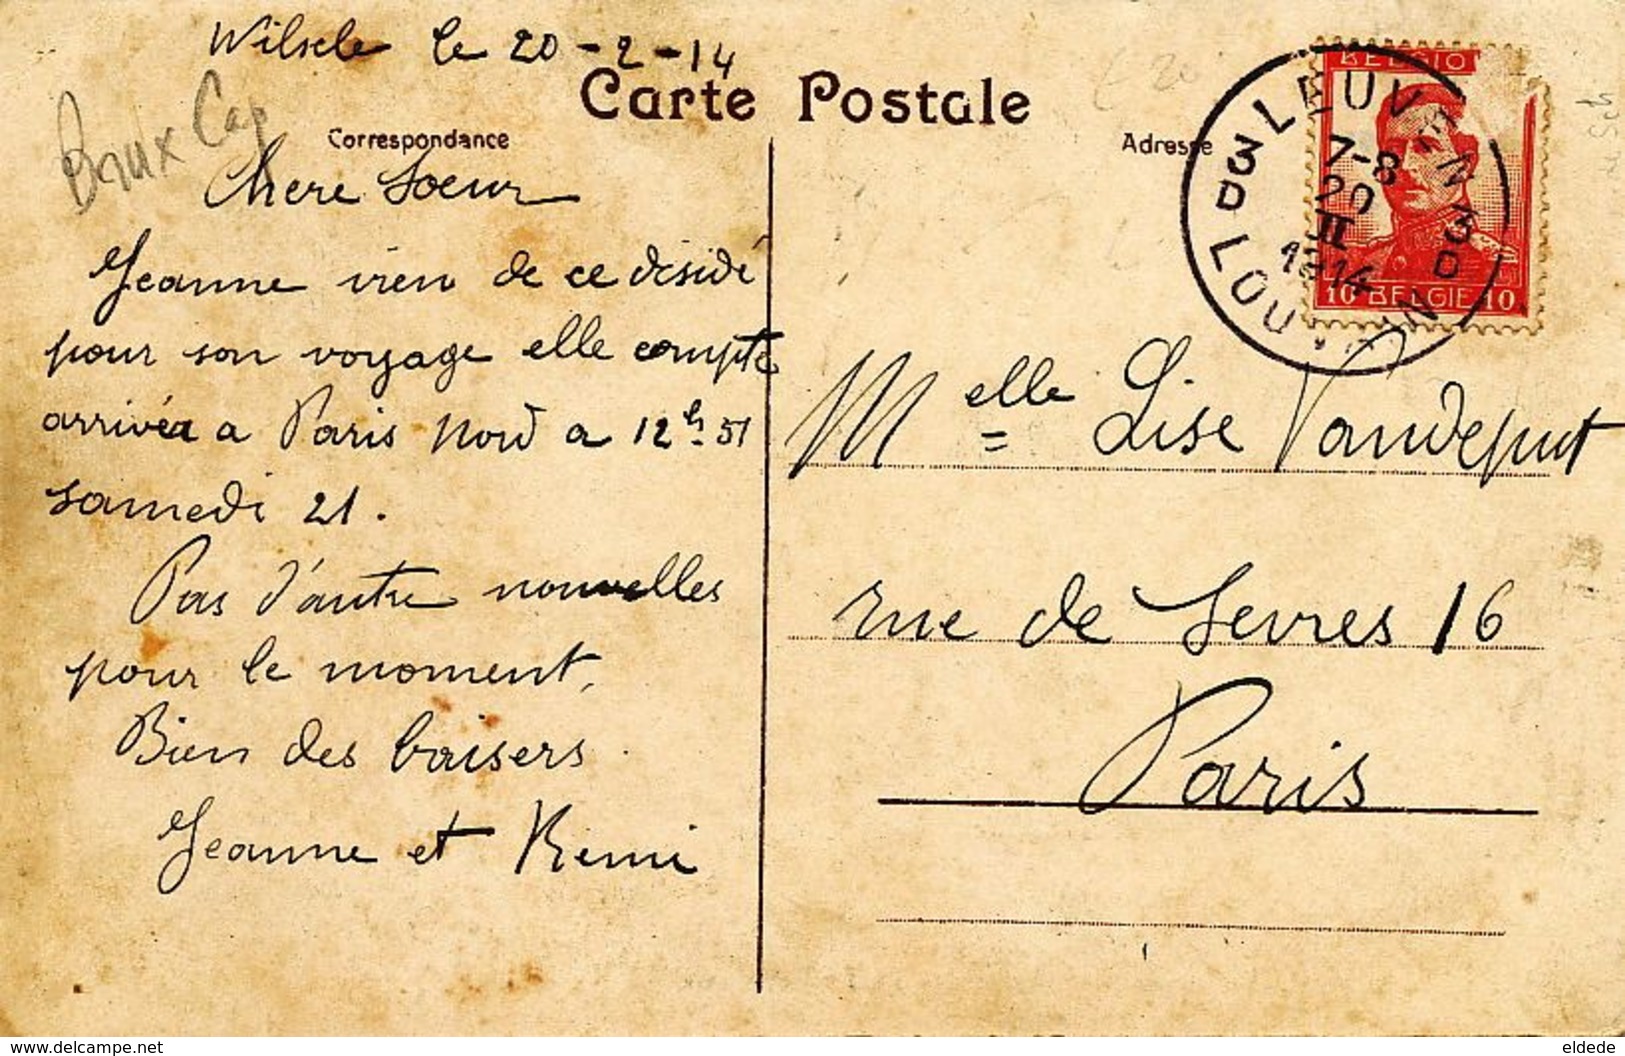 Wilsele le 20-2-14
Carte Postale
Brux Cap
Correspondance
Chere Soeur
Jeanne vien de ce déside
pour son voyage elle compte
arrivéa a Paris Nord a 12h 51
samedi 21.
Pas d'autre nouvelles
pour le moment,
Bien des baisers.
Jeanne et Remi
Adresse
BELGIQ
LEUVEN
3D
7-8
20
II
1914
3D
LOUVAIN
10 BELGIE 10
Melle Lise Vandeput
rue de Sevres 16
Paris
delcampe.net
eldede